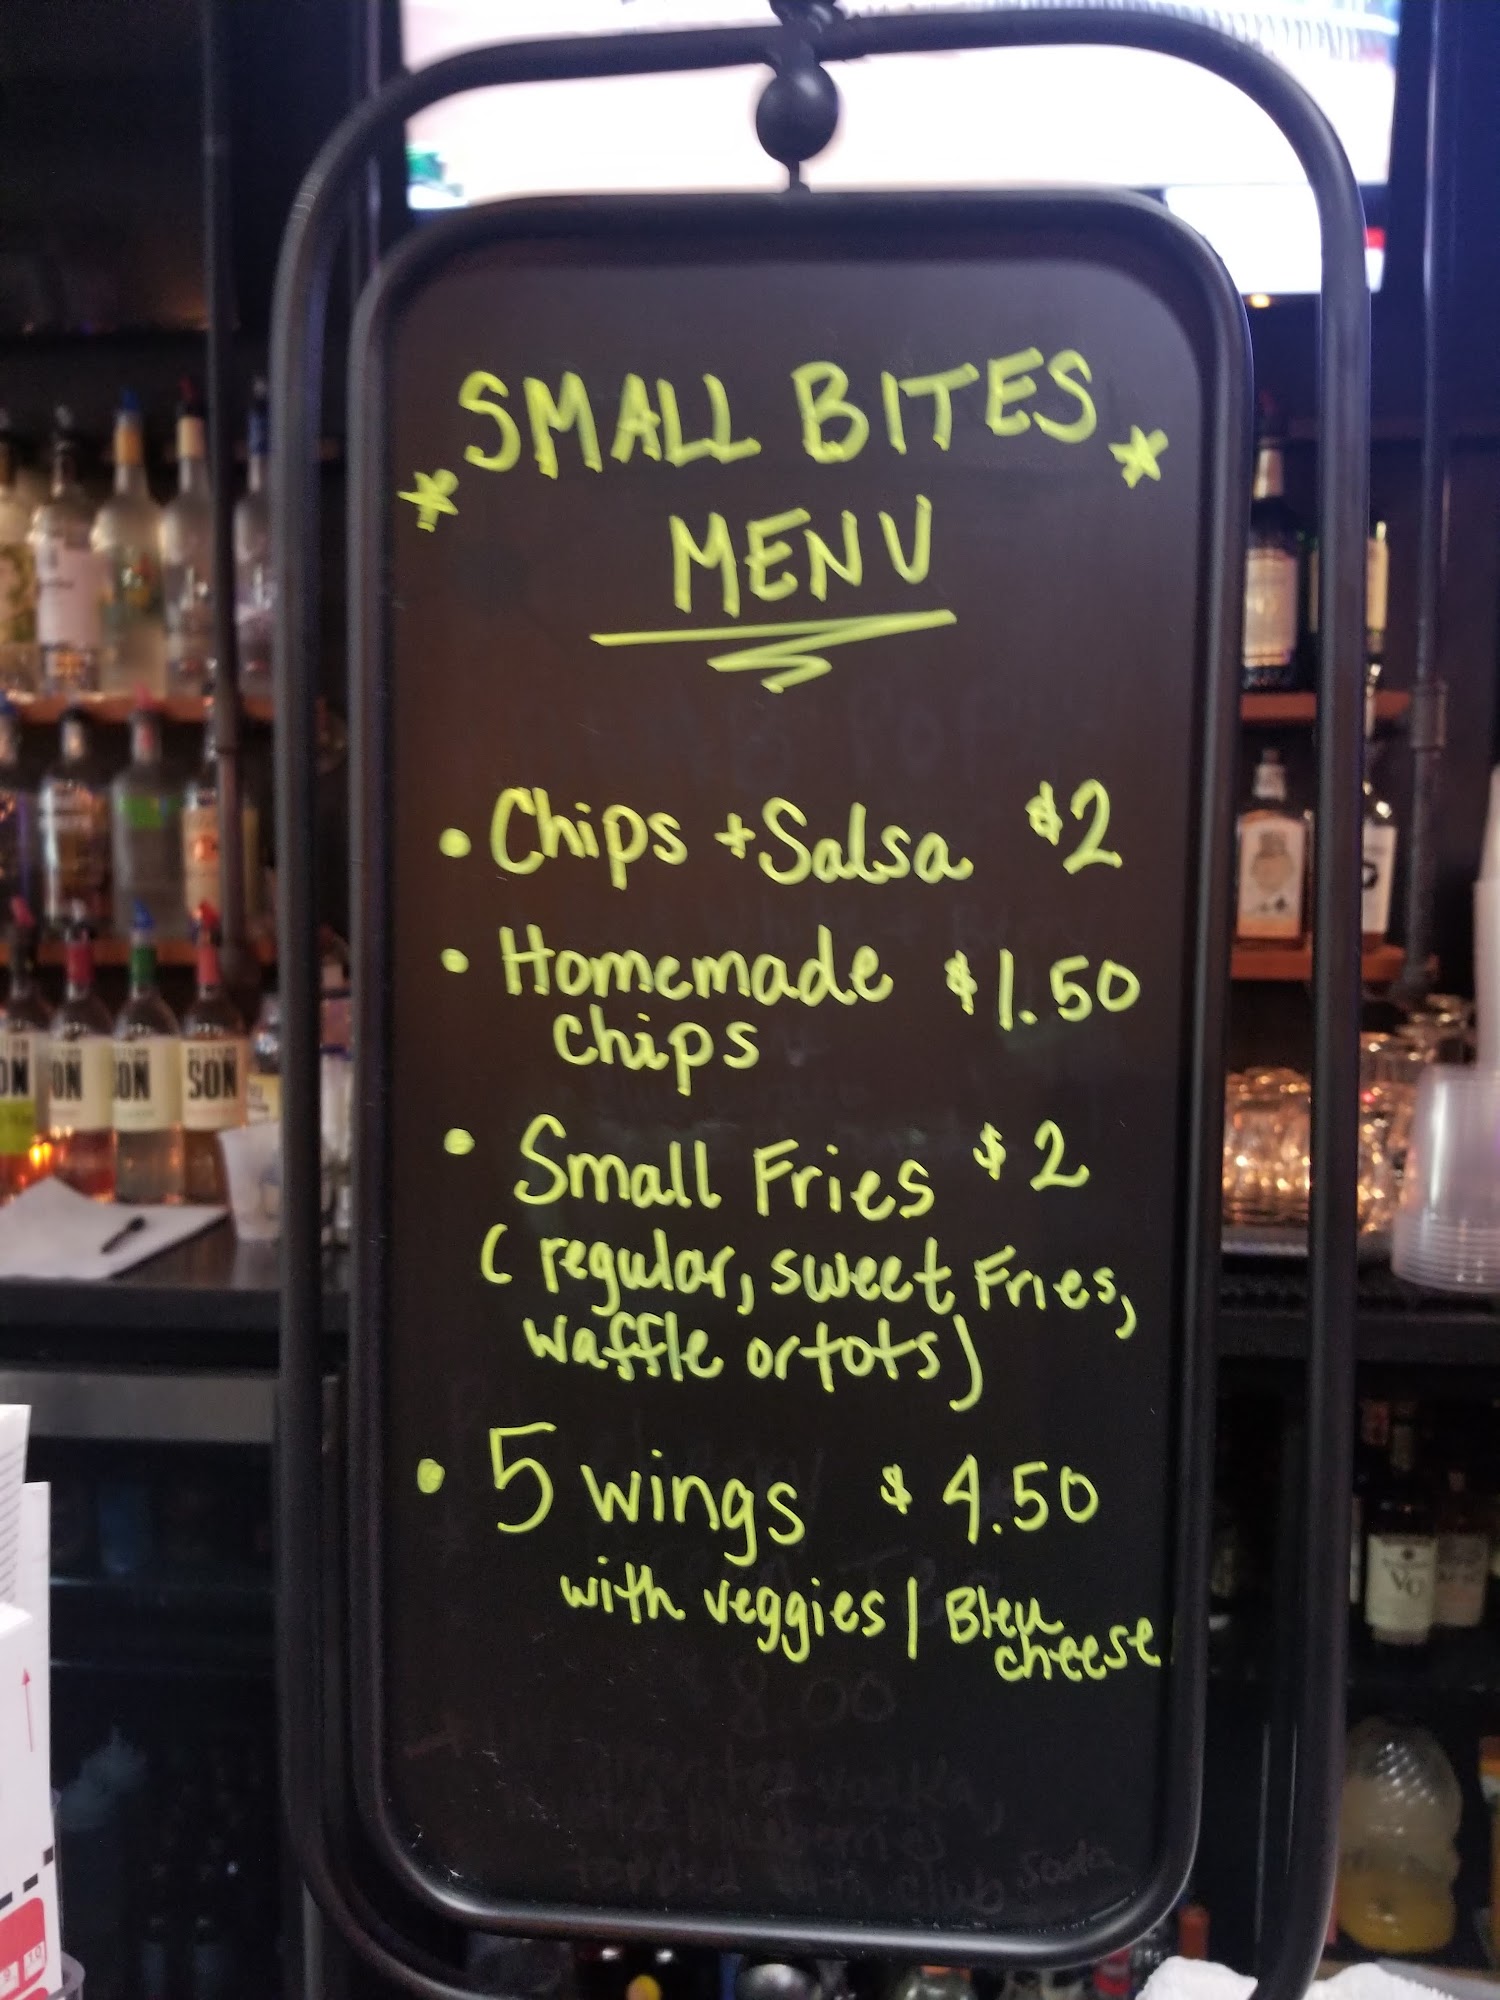 SMALL BITES
MENU
• Chips + Salsa $2
• Homemade $1.50
chips
• Small Fries $2
( regular, sweet Fries,
waffle or tots)
• 5 wings $4.50
with veggies / Bleu
cheese
8.00
vodka,
topped with club soda
SON
SON
VO